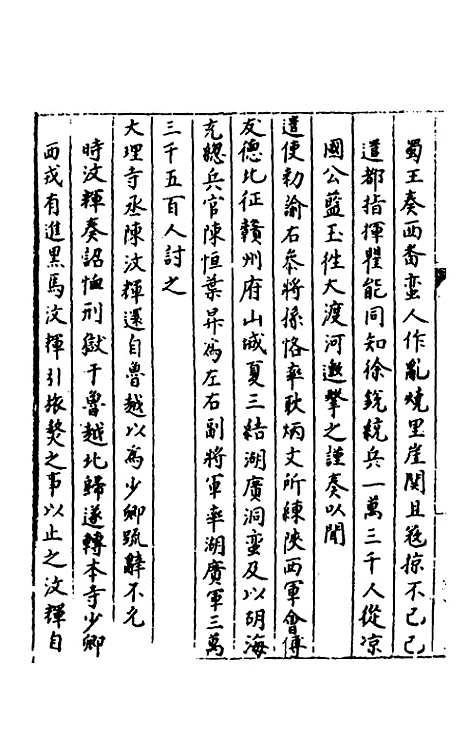 蜀王奏西番蠻人作亂燒黑崖関且寇掠不已已
遣都指揮瞿能同知徐銳統兵一萬三千人從涼
國公藍玉往大渡河邀擊之謹奏以聞
遣使勅諭右叅將孫恪率耿炳文所練陜西軍會傅
友德北征贛州府山賊夏三結湖廣洞蠻及以胡海
充總兵官陳桓葉昇為左右副將軍率湖廣軍三萬
三千五百人討之
大理寺丞陳汶輝還自魯越以為少卿疏辭不允
時汶輝奏詔恤刑獄于魯越北歸遂轉本寺少卿
西戎有進黒馬汶輝引旅獒之事以止之汶輝自